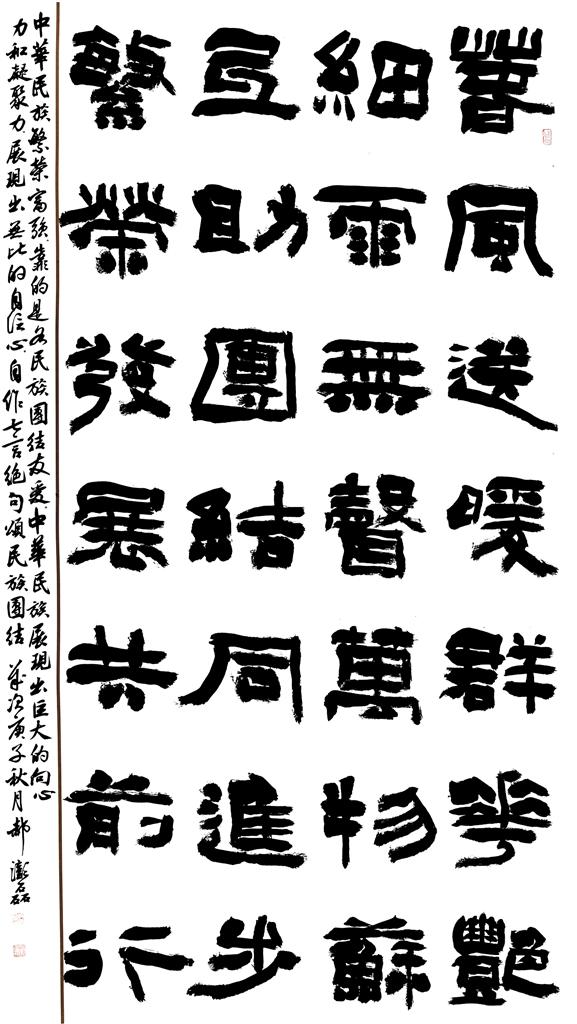 春風送暖群華艷
細雨無聲萬物蘇
互助團結同進步
繁榮發展共前行
中華民族繁榮富強靠的是各民族團結友愛中華民族展現出巨大的向心
力和凝聚力展現出無比的自信心自作七言絕句頌民族團結 歲次庚子秋月 郝澎磊